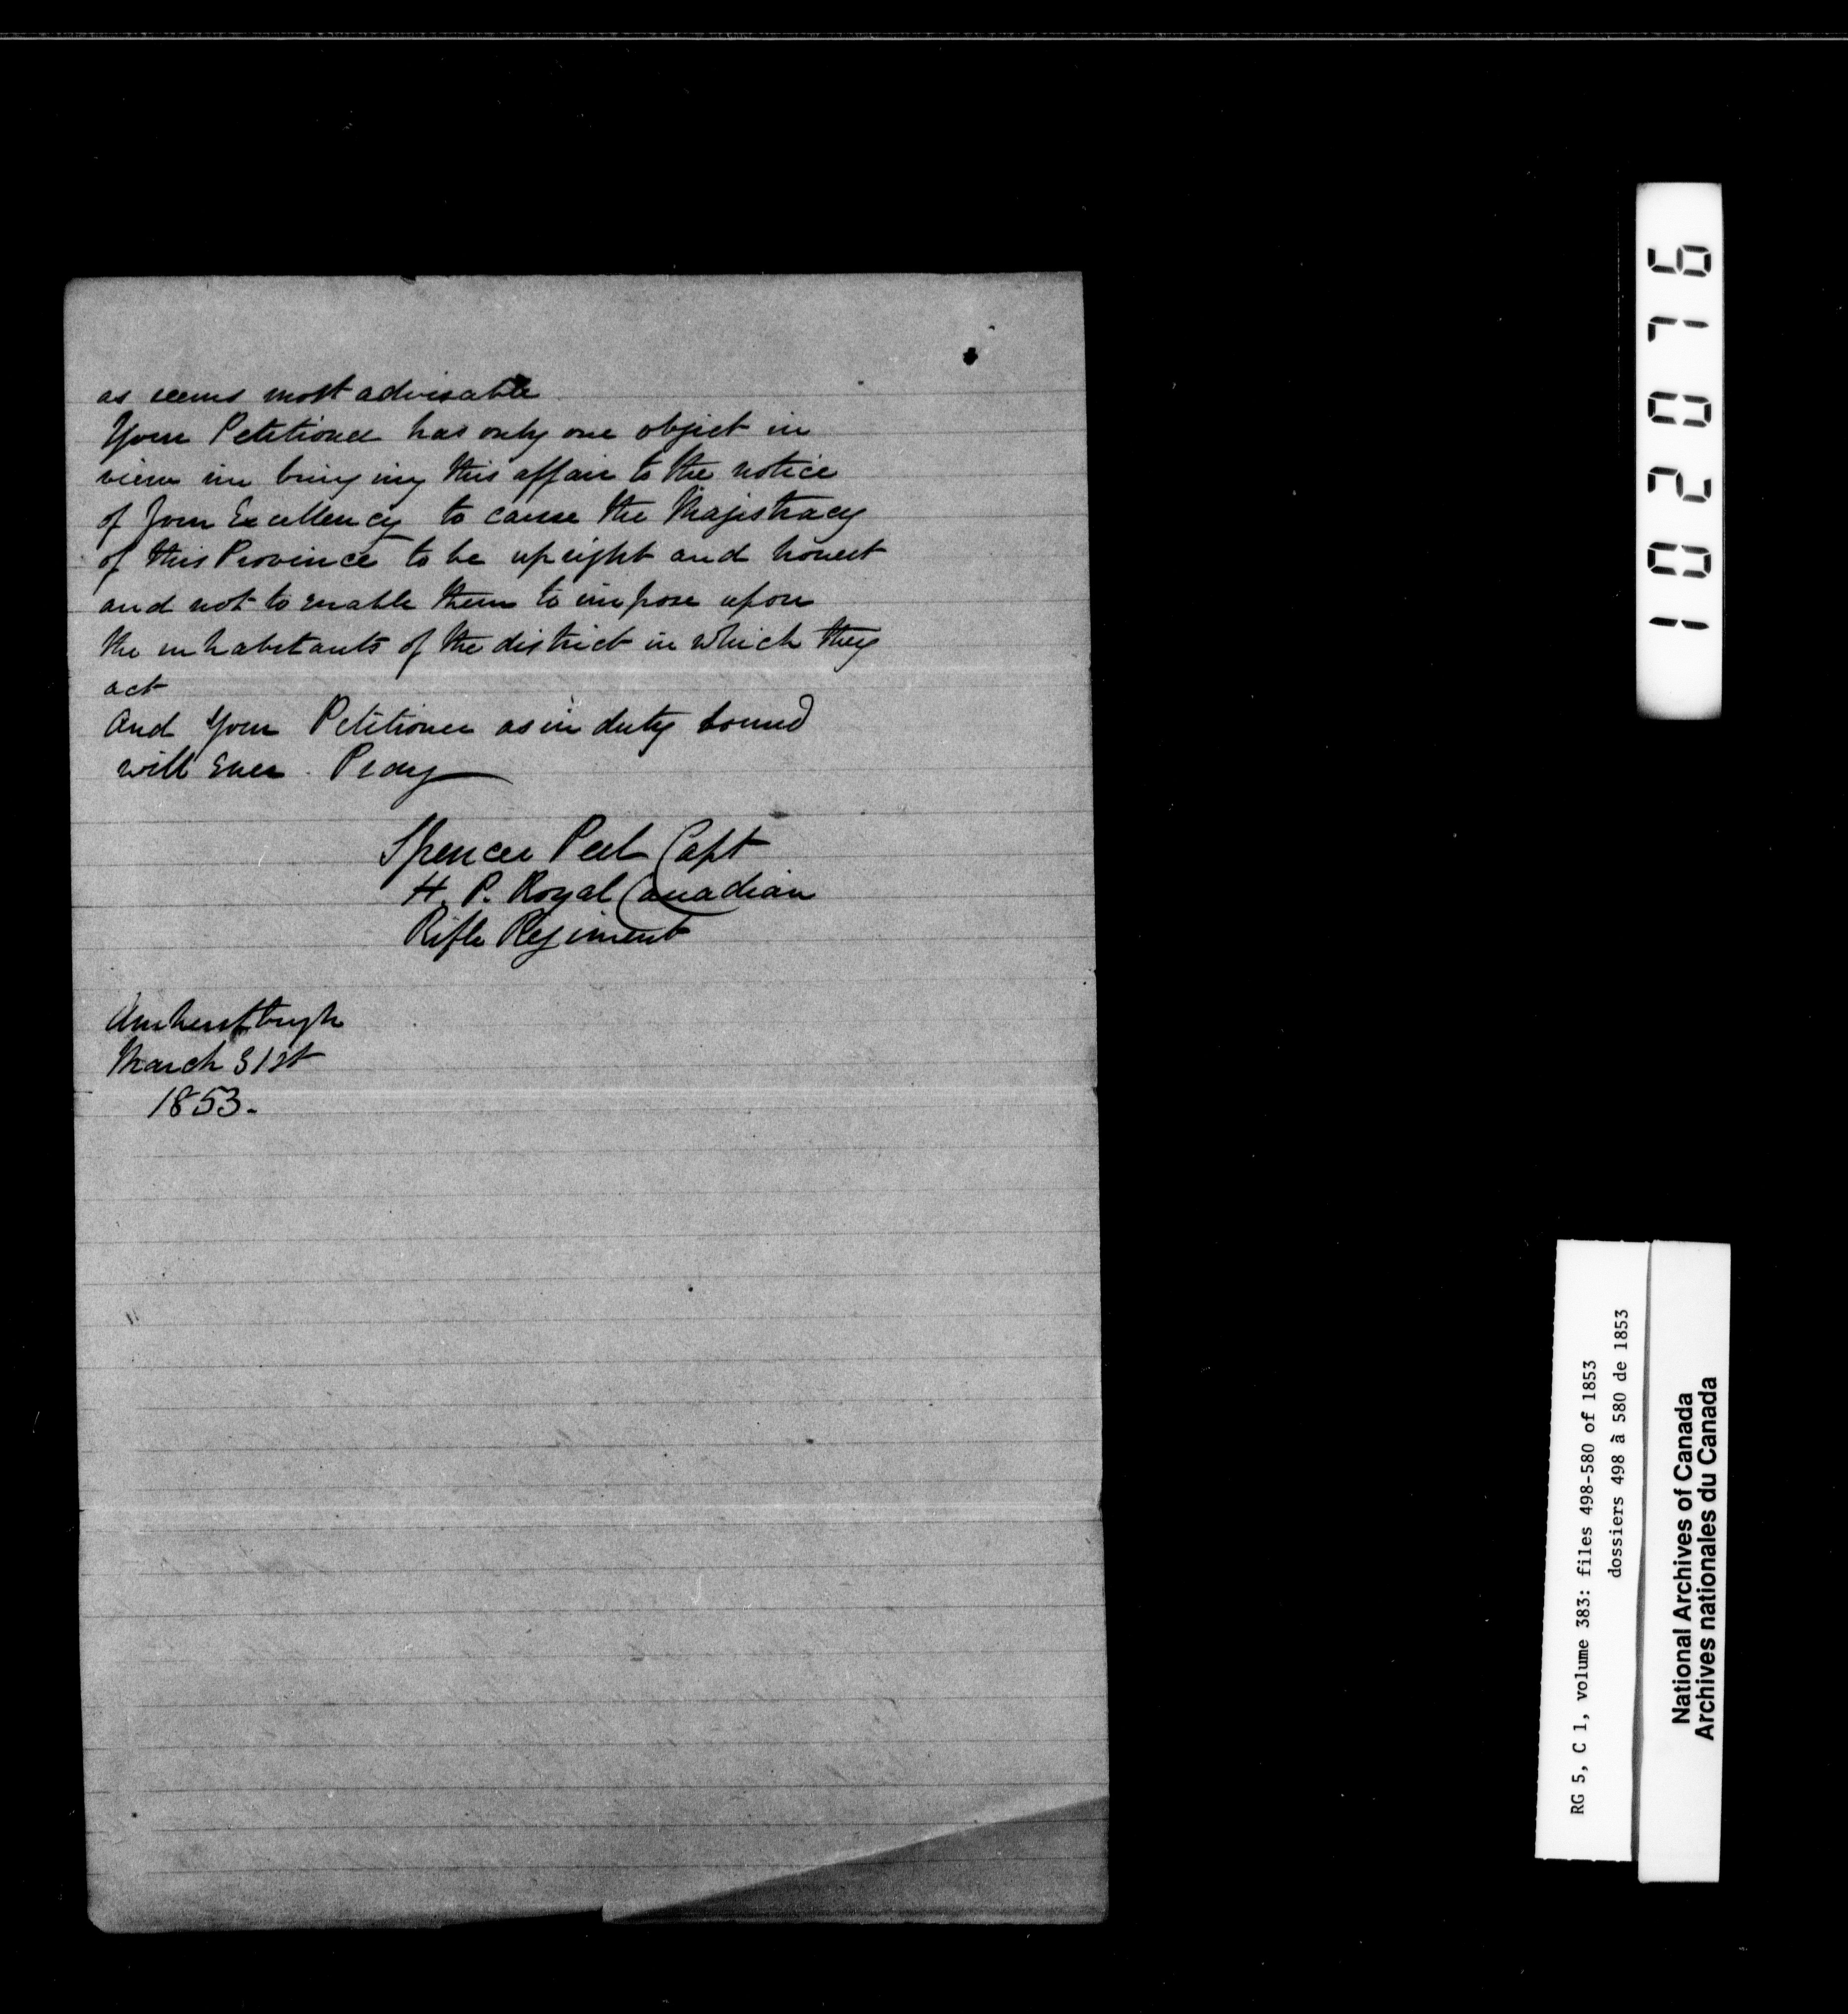 as seems most advisable.
Your Petitioner has only one object in
view in bringing this affair to the notice
of Your Excellency to cause the Magistracy
of this Province to be upright and honest
and not to enable them to impose upon
the inhabitants of the district in which they
act
And Your Petitioner as in duty bound
will Ever Pray
Spencer Peel Capt
H. P. Royal Canadian
Rifle Regiment
Amherstburgh
March 31st
1853.
102076
RG 5, C 1, volume 383: files 498-580 of 1853
dossiers 498 à 580 de 1853
National Archives of Canada
Archives nationales du Canada